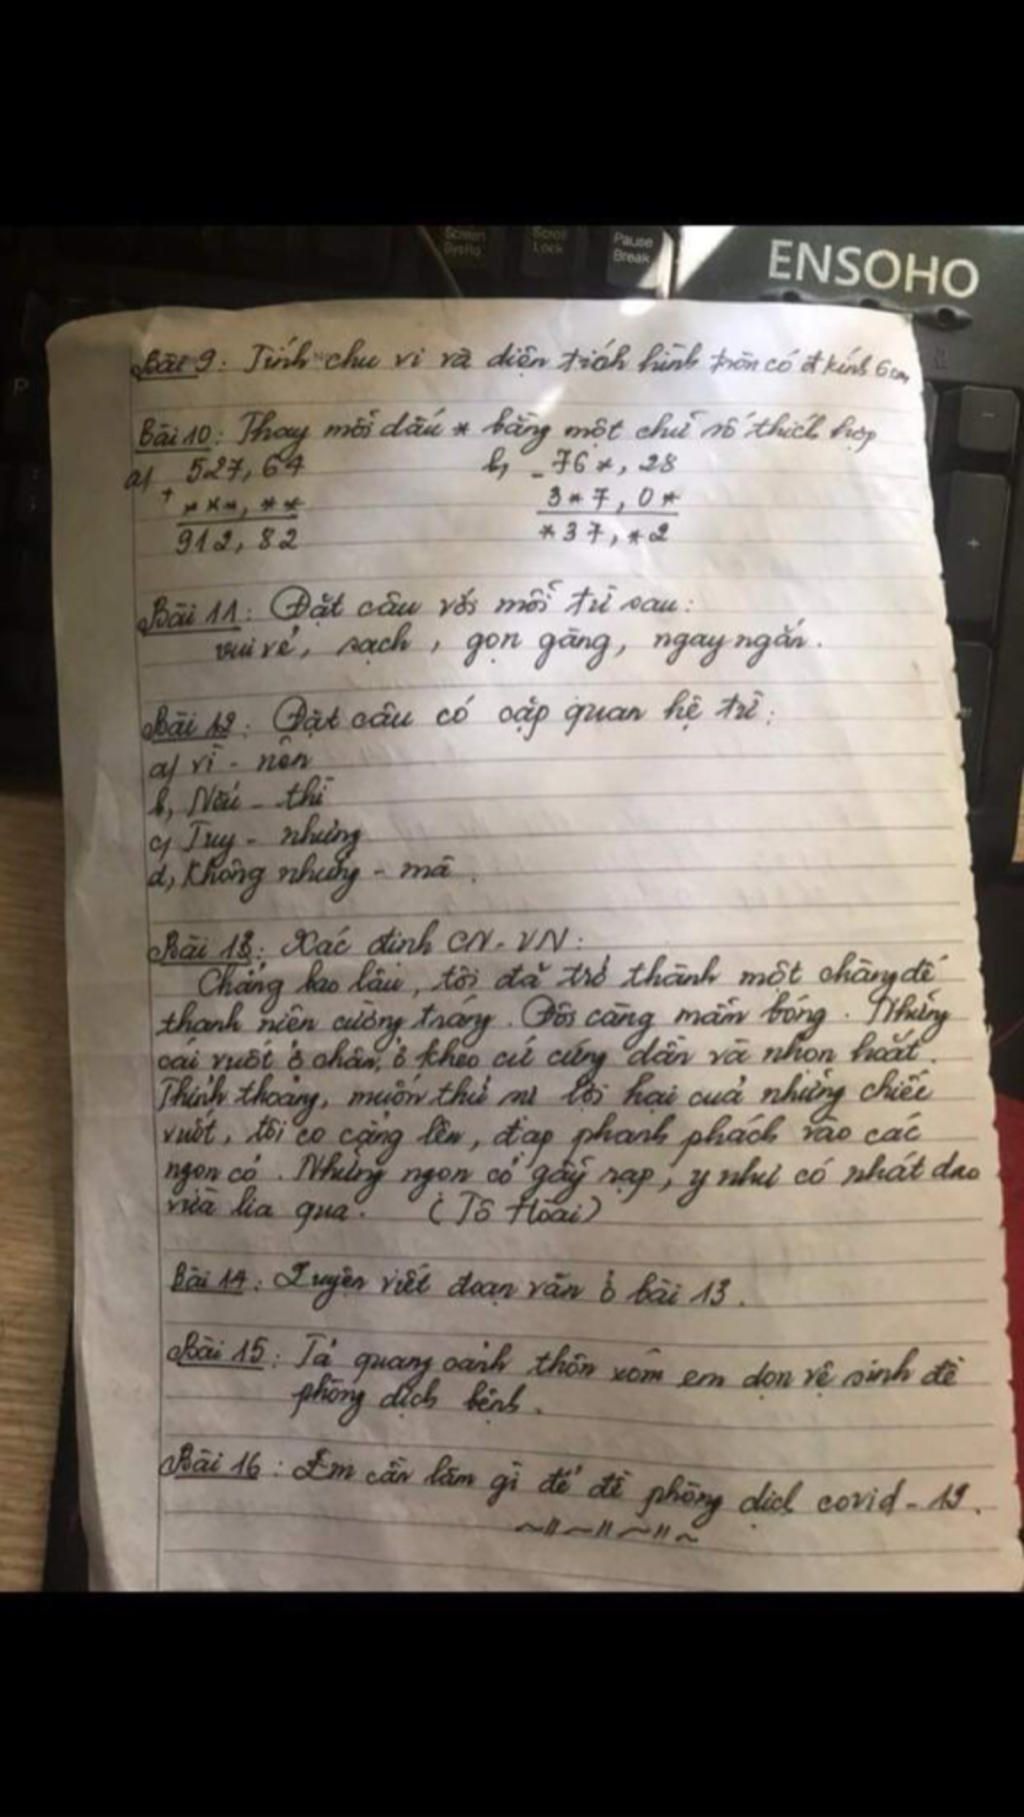 Screen
SysRq
Scroll
Lock
Pause
Break
ENSOHO
P
+
Bài 9: Tính chu vi và diện tích hình tròn có đ kính 6cm
Bài 10: Thay mỗi dấu * bằng một chữ số thích hợp
a) 527,64 b, - 76*,28
+ ***,** 3*7,0*
912,82 *37,*2
Bài 11: Đặt câu với mỗi từ sau:
vui vẻ, sạch, gọn gàng, ngay ngắn.
Bài 12: Đặt câu có cặp quan hệ từ:
a) vì - nên
b, Nếu - thì
c) Tuy - nhưng
d, Không nhưng - mà.
Bài 13: Xác định CN - VN:
Chẳng bao lâu, tôi đã trở thành một chàng dế
thanh niên cường tráng. Đôi càng mẫm bóng. Những
cái vuốt ở chân, ở kheo cứ cứng dần và nhọn hoắt.
Thỉnh thoảng, muốn thử sự lợi hại của những chiếc
vuốt, tôi co cẳng lên, đạp phanh phách vào các
ngọn cỏ. Những ngọn cỏ gẫy rạp, y như có nhát dao
vừa lia qua. (Tô Hoài)
Bài 14: Luyện viết đoạn văn ở bài 13.
Bài 15: Tả quang cảnh thôn xóm em dọn vệ sinh đề
phòng dịch bệnh.
Bài 16: Em cần làm gì để đề phòng dịch covid-19.